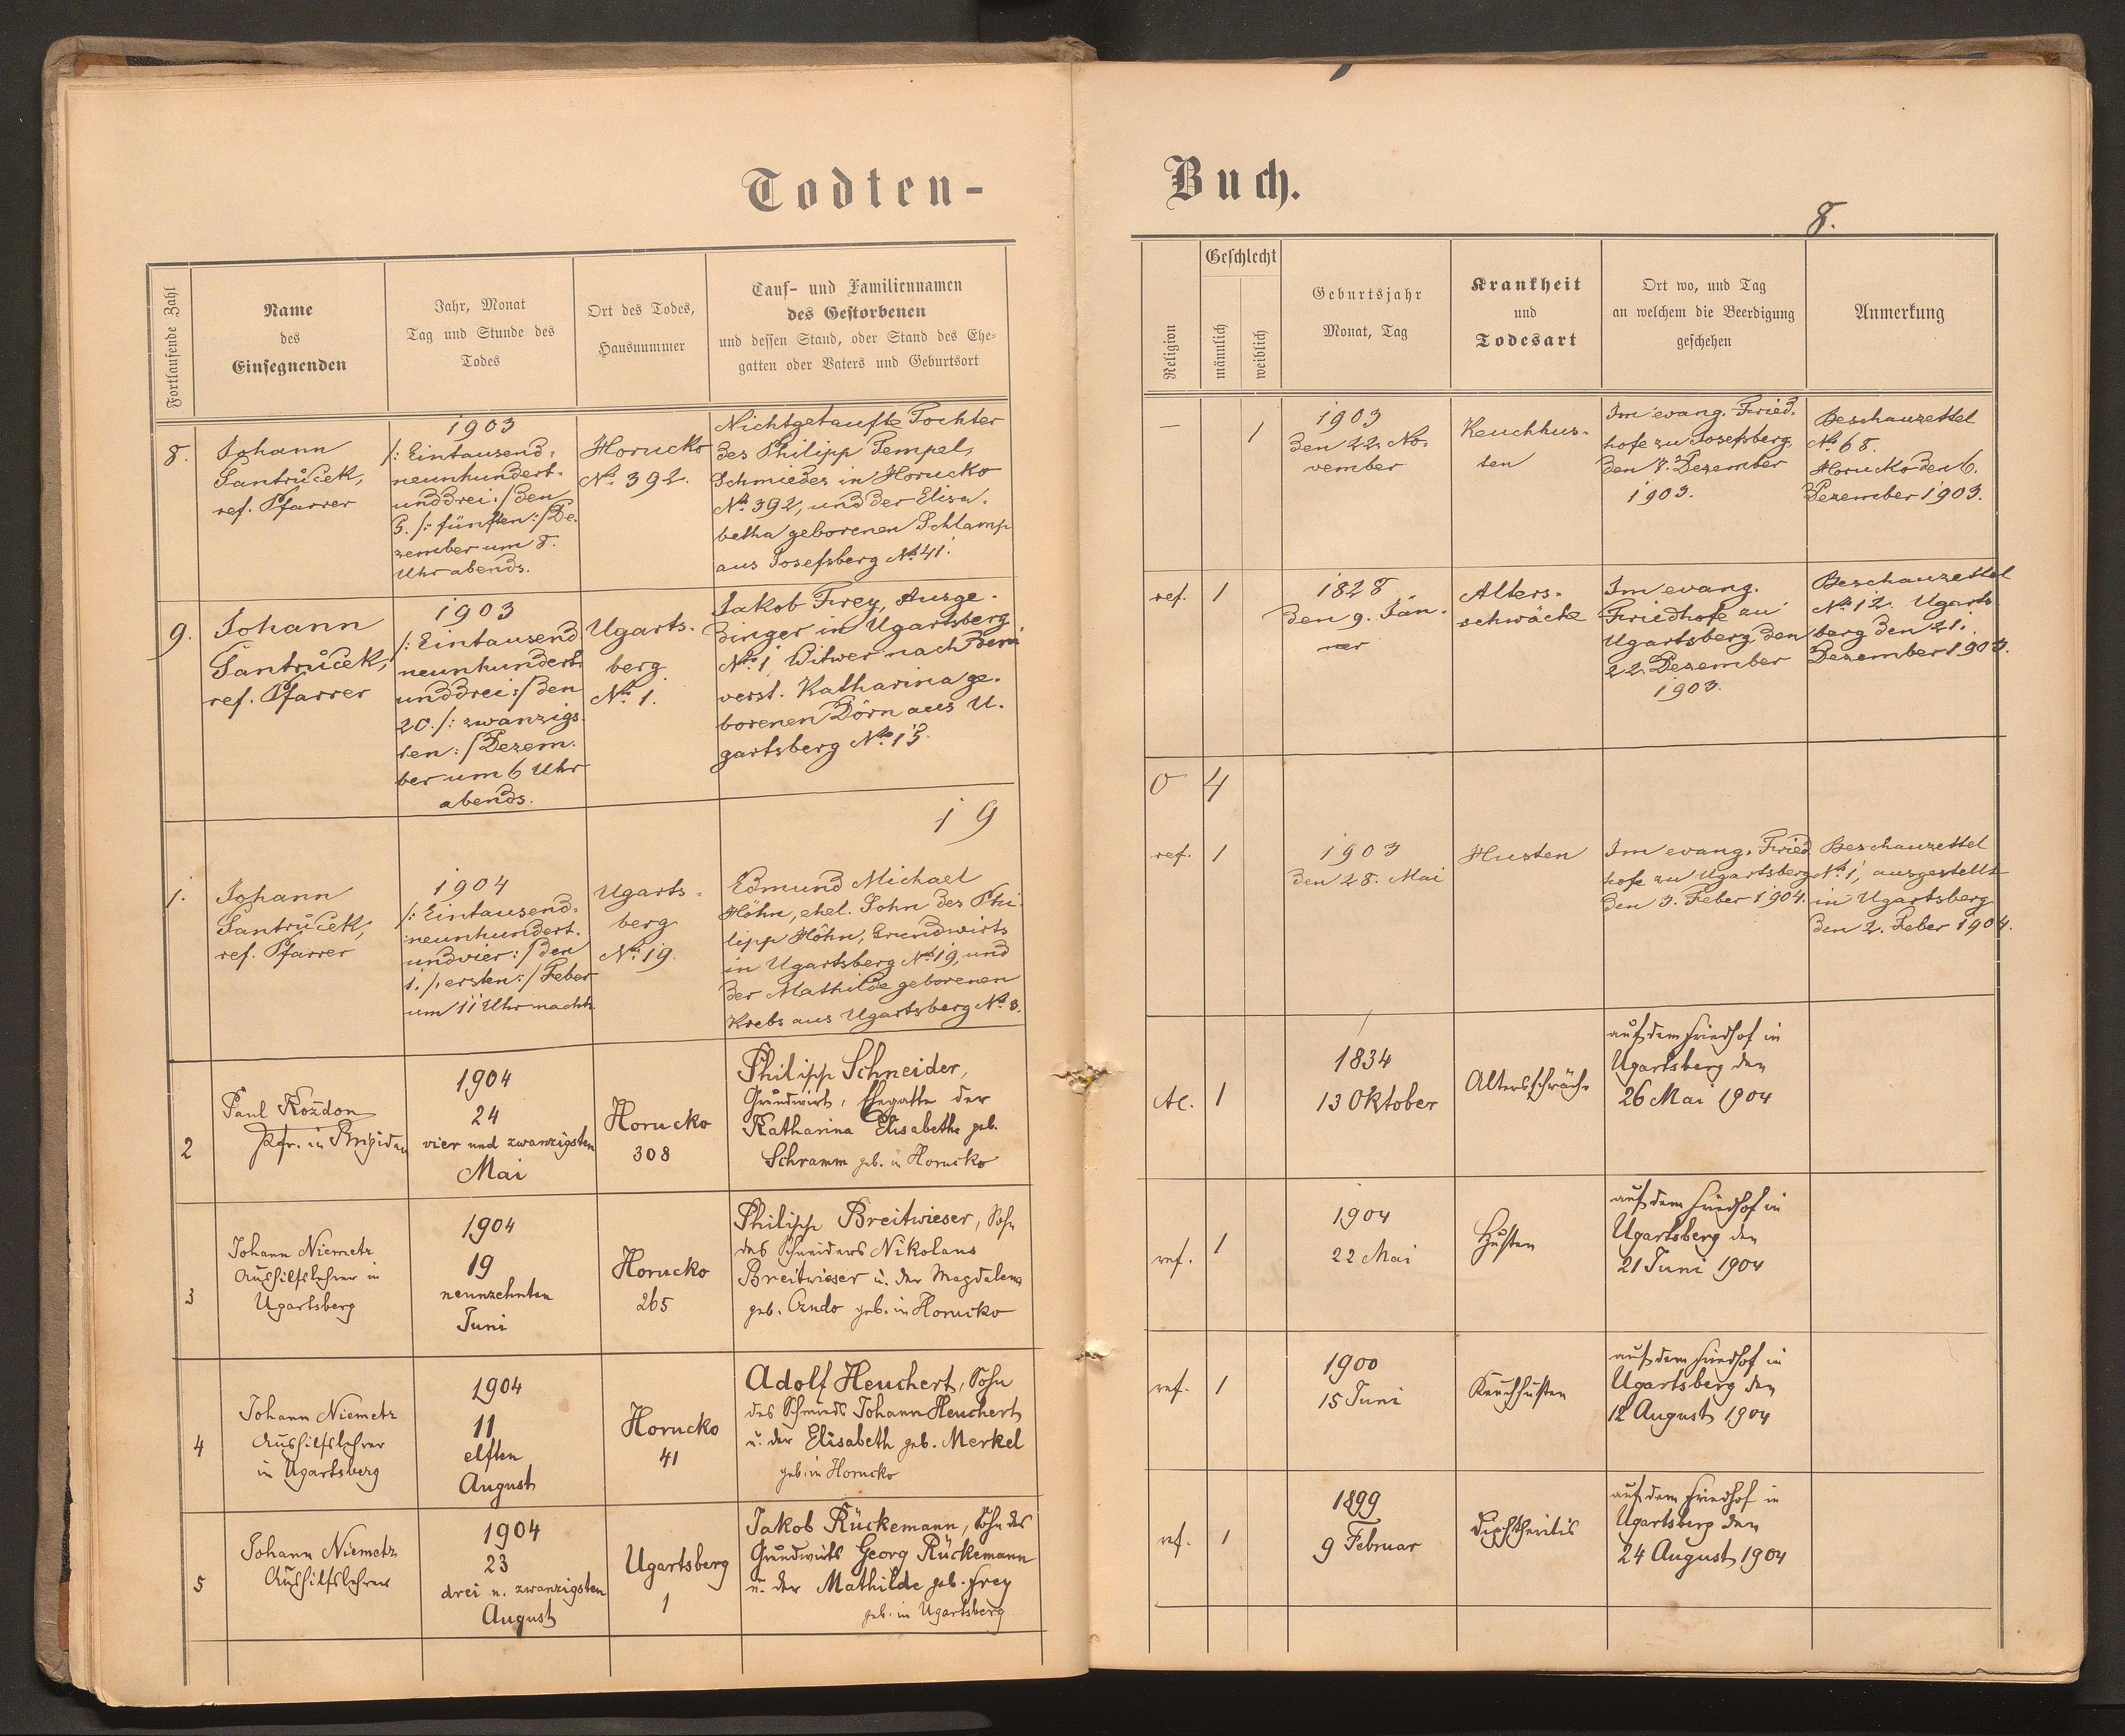 Todten-
Buch.
8.
Fortlaufende Zahl
Name
des
Einsegnenden
Jahr, Monat
Tag und Stunde des
Todes
Ort des Todes,
Hausnummer
Tauf- und Familiennamen
des Gestorbenen
und dessen Stand, oder Stand des Ehe-
gatten oder Vaters und Geburtsort
Religion
Geschlecht
männlich
weiblich
Geburtsjahr
Monat, Tag
Krankheit
und
Todesart
Ort wo, und Tag
an welchem die Beerdigung
geschehen
Anmerkung
8.
Johann
Šantrůček,
ref. Pfarrer
1903
/: Eintausend-
neunhundert-
unddrei :/ den
5. /: fünften :/ De-
zember um 8.
Uhr abends.
Horucko
No. 392.
Nichtgetaufte Tochter
des Philipp Tempel,
Schmiedes in Horucko
No. 392, und der Elisa-
betha geborenen Schlamp
aus Josefsberg No. 41.
—
1
1903
den 22. No-
vember
Keuchhus-
ten
Im evang. Fried-
hofe zu Josefsberg
den 7. Dezember
1903.
Beschauzettel
No. 68.
Horucko den 6.
Dezember 1903.
9.
Johann
Šantrůček,
ref. Pfarrer
1903
/: Eintausend
neunhundert-
unddrei :/ den
20. /: zwanzigs-
ten :/ Dezem-
ber um 6 Uhr
abends.
Ugarts-
berg
No. 1.
Jakob Frey, Ausge-
dinger in Ugartsberg
No. 1, Witwer nach dem
verst. Katharina ge-
borenen Dörn aus U-
gartsberg No. 13.
ref.
1
1828
den 9. Jän-
ner
Alters-
schwäche
Im evang.
Friedhofe zu
Ugartsberg den
22. Dezember
1903.
Beschauzettel
No. 12. Ugarts-
berg den 21.
Dezember 1903.
19
0 4
1.
Johann
Šantrůček,
ref. Pfarrer
1904
/: Eintausend-
neunhundert-
undvier :/ den
1. /: ersten :/ Feber
um 11 Uhr nachts.
Ugarts-
berg
No. 19.
Edmund Michael
Höhn, ehel. Sohn des Phi-
lipp Höhn, Grundwirts
in Ugartsberg No. 19, und
der Mathilde geborenen
Krebs aus Ugartsberg No. 3.
ref.
1
1903
den 28. Mai
Husten
Im evang. Fried
hofe zu Ugartsberg
den 3. Feber 1904.
Beschauzettel
No. 1, ausgestellt
in Ugartsberg
den 2. Feber 1904.
2
Paul Kożdon
Pfr. in Brigidau
1904
24
vier und zwanzigsten
Mai
Horucko
308
Philipp Schneider,
Grundwirt, Ehegatte der
Katharina Elisabetha geb.
Schramm geb. in Horucko
1
1834
13 Oktober
Altersschwäche
auf dem Friedhof in
Ugartsberg den
26 Mai 1904
3
Johann Niemetz
Aushilfslehrer in
Ugartsberg
1904
19
neunzehnten
Juni
Horucko
265
Philipp Breitwieser, Sohn
des Schneiders Nikolaus
Breitwieser u. der Magdalena
geb. geb. in Horucko
ref.
1
1904
22 Mai
Husten
auf dem Friedhof in
Ugartsberg den
21 Juni 1904
4
Johann Niemetz
Aushilfslehrer
in Ugartsberg
1904
11
elften
August
Horucko
41
Adolf Heuchert, Sohn
des Schmieds Johann Heuchert
u. der Elisabeth geb. Merkel
geb. in Horucko
ref.
1
1900
15 Juni
Keuchhusten
auf dem Friedhof in
Ugartsberg den
12 August 1904
5
Johann Niemetz
Aushilfslehrer
1904
23
drei u. zwanzigsten
August
Ugartsberg
1
Jakob Rückemann, Sohn des
Grundwirts Georg Rückemann
u. der Mathilde geb. Frey
geb. in Ugartsberg
ref.
1
1899
9 Februar
Diphtheritis
auf dem Friedhof in
Ugartsberg den
24 August 1904